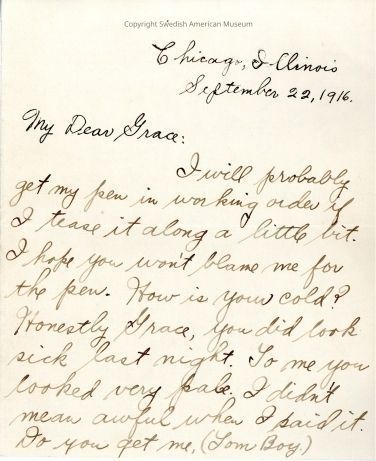 Copyright Swedish American Museum
Chicago, Illinois
September 22, 1916.
My Dear Grace:
I will probably
get my pen in working order if
I tease it along a little bit.
I hope you won't blame me for
the pen. How is your cold?
Honestly Grace, you did look
sick last night. To me you
looked very pale. I didn't
mean awful when I said it.
Do you get me, (Tom Boy.)